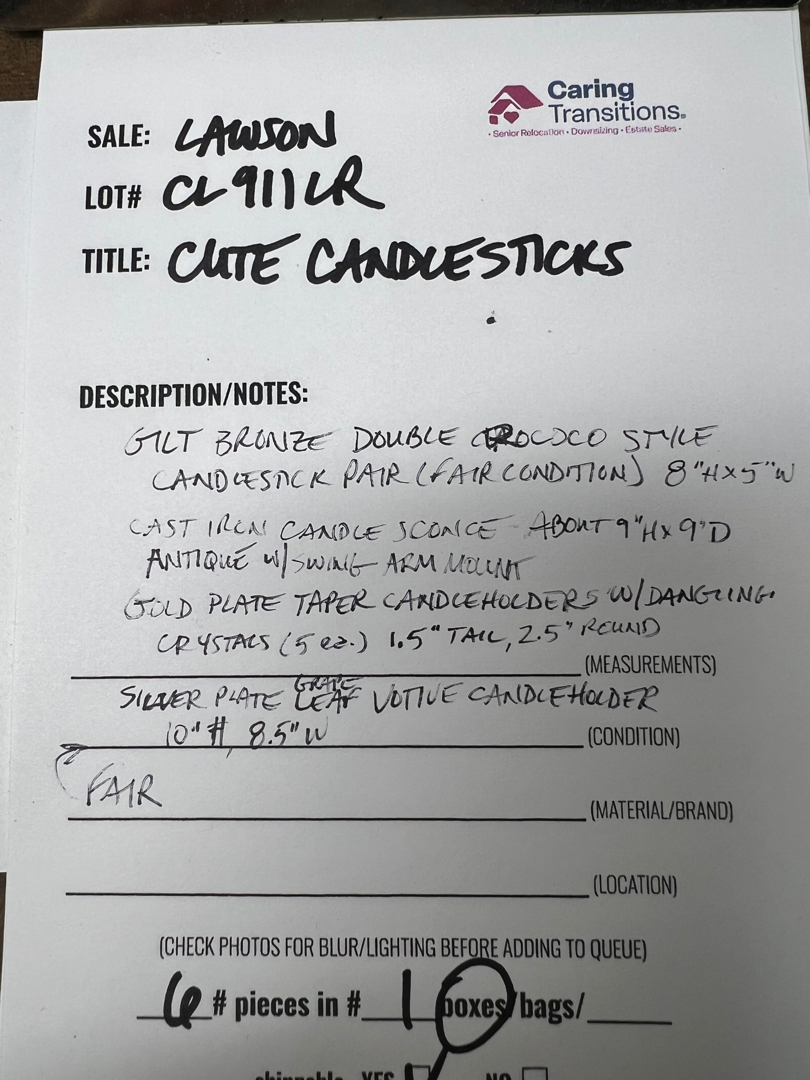 Caring
Transitions.
• Senior Relocation • Downsizing • Estate Sales •
SALE: LAWSON
LOT# CL911LR
TITLE: CUTE CANDLESTICKS
DESCRIPTION/NOTES:
GILT BRONZE DOUBLE ROCOCO STYLE
CANDLESTICK PAIR (FAIR CONDITION) 8"H X 5"W
CAST IRON CANDLE SCONCE - ABOUT 9"H x 9"D
ANTIQUE W/SWING ARM MOUNT
GOLD PLATE TAPER CANDLEHOLDERS W/DANGLING
CRYSTALS (5 ez.) 1.5" TALL, 2.5" ROUND
(MEASUREMENTS)
SILVER PLATE GRAPE LEAF VOTIVE CANDLEHOLDER
10" H, 8.5" W
(CONDITION)
FAIR
(MATERIAL/BRAND)
(LOCATION)
(CHECK PHOTOS FOR BLUR/LIGHTING BEFORE ADDING TO QUEUE)
6 # pieces in # 1 boxes/bags/
shippable YES NO